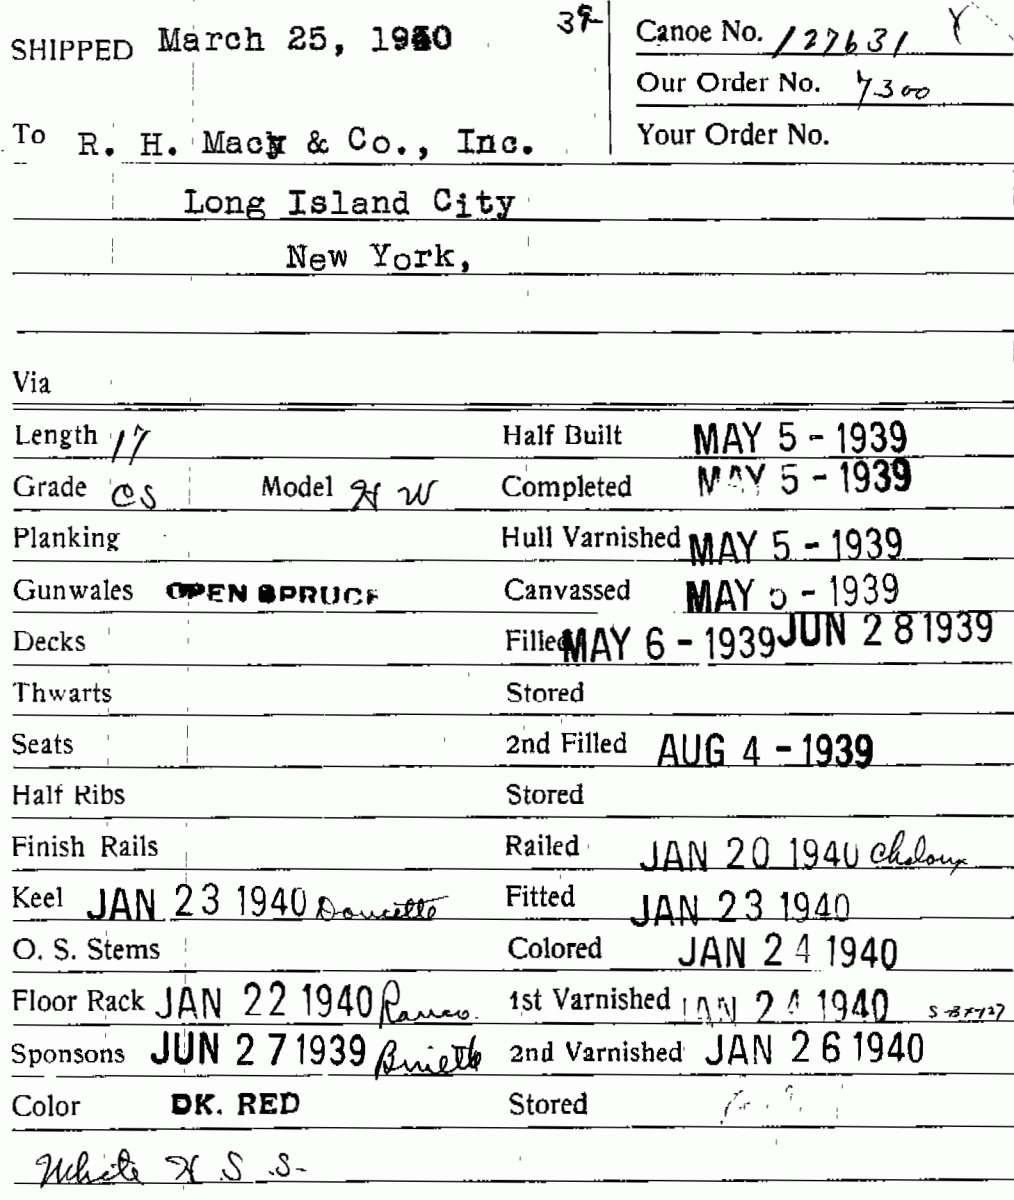 SHIPPED March 25, 1940
39-
Canoe No. 127631
Our Order No. 7300
Your Order No.
To R. H. Macy & Co., Inc.
Long Island City
New York,
Via
Length 17 Half Built MAY 5 - 1939
Grade CS Model H W Completed MAY 5 - 1939
Planking Hull Varnished MAY 5 - 1939
Gunwales OPEN SPRUCE Canvassed MAY 5 - 1939
Decks Filled MAY 6 - 1939 JUN 28 1939
Thwarts Stored
Seats 2nd Filled AUG 4 - 1939
Half Ribs Stored
Finish Rails Railed JAN 20 1940
Keel JAN 23 1940 Doucette Fitted JAN 23 1940
O. S. Stems Colored JAN 24 1940
Floor Rack JAN 22 1940 1st Varnished JAN 24 1940
Sponsons JUN 27 1939 2nd Varnished JAN 26 1940
Color DK. RED Stored
White H S .S-